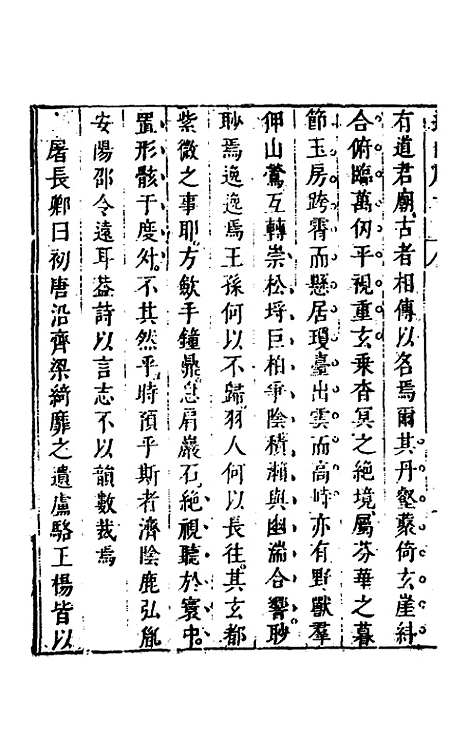 有道君廟古者相傳以名焉爾其丹壑藂倚玄崖糾
合俯臨萬仞平視重玄乘杳冥之絕境屬芬華之暮
節玉房跨霄而懸居瓊臺出雲而高峙亦有野獸羣
狎山鶯互轉崇松埒巨柏爭陰積瀨與幽湍合響眇
眇焉逸逸焉王孫何以不歸羽人何以長往其玄都
紫微之事耶方歛手鐘鼎息肩巖石絕視聽於寰中
置形骸于度外不其然乎時預乎斯者濟陰鹿弘胤
安陽邵令遠耳葢詩以言志不以韻數裁焉
屠長卿曰初唐沿齊梁綺靡之遺盧駱王楊皆以